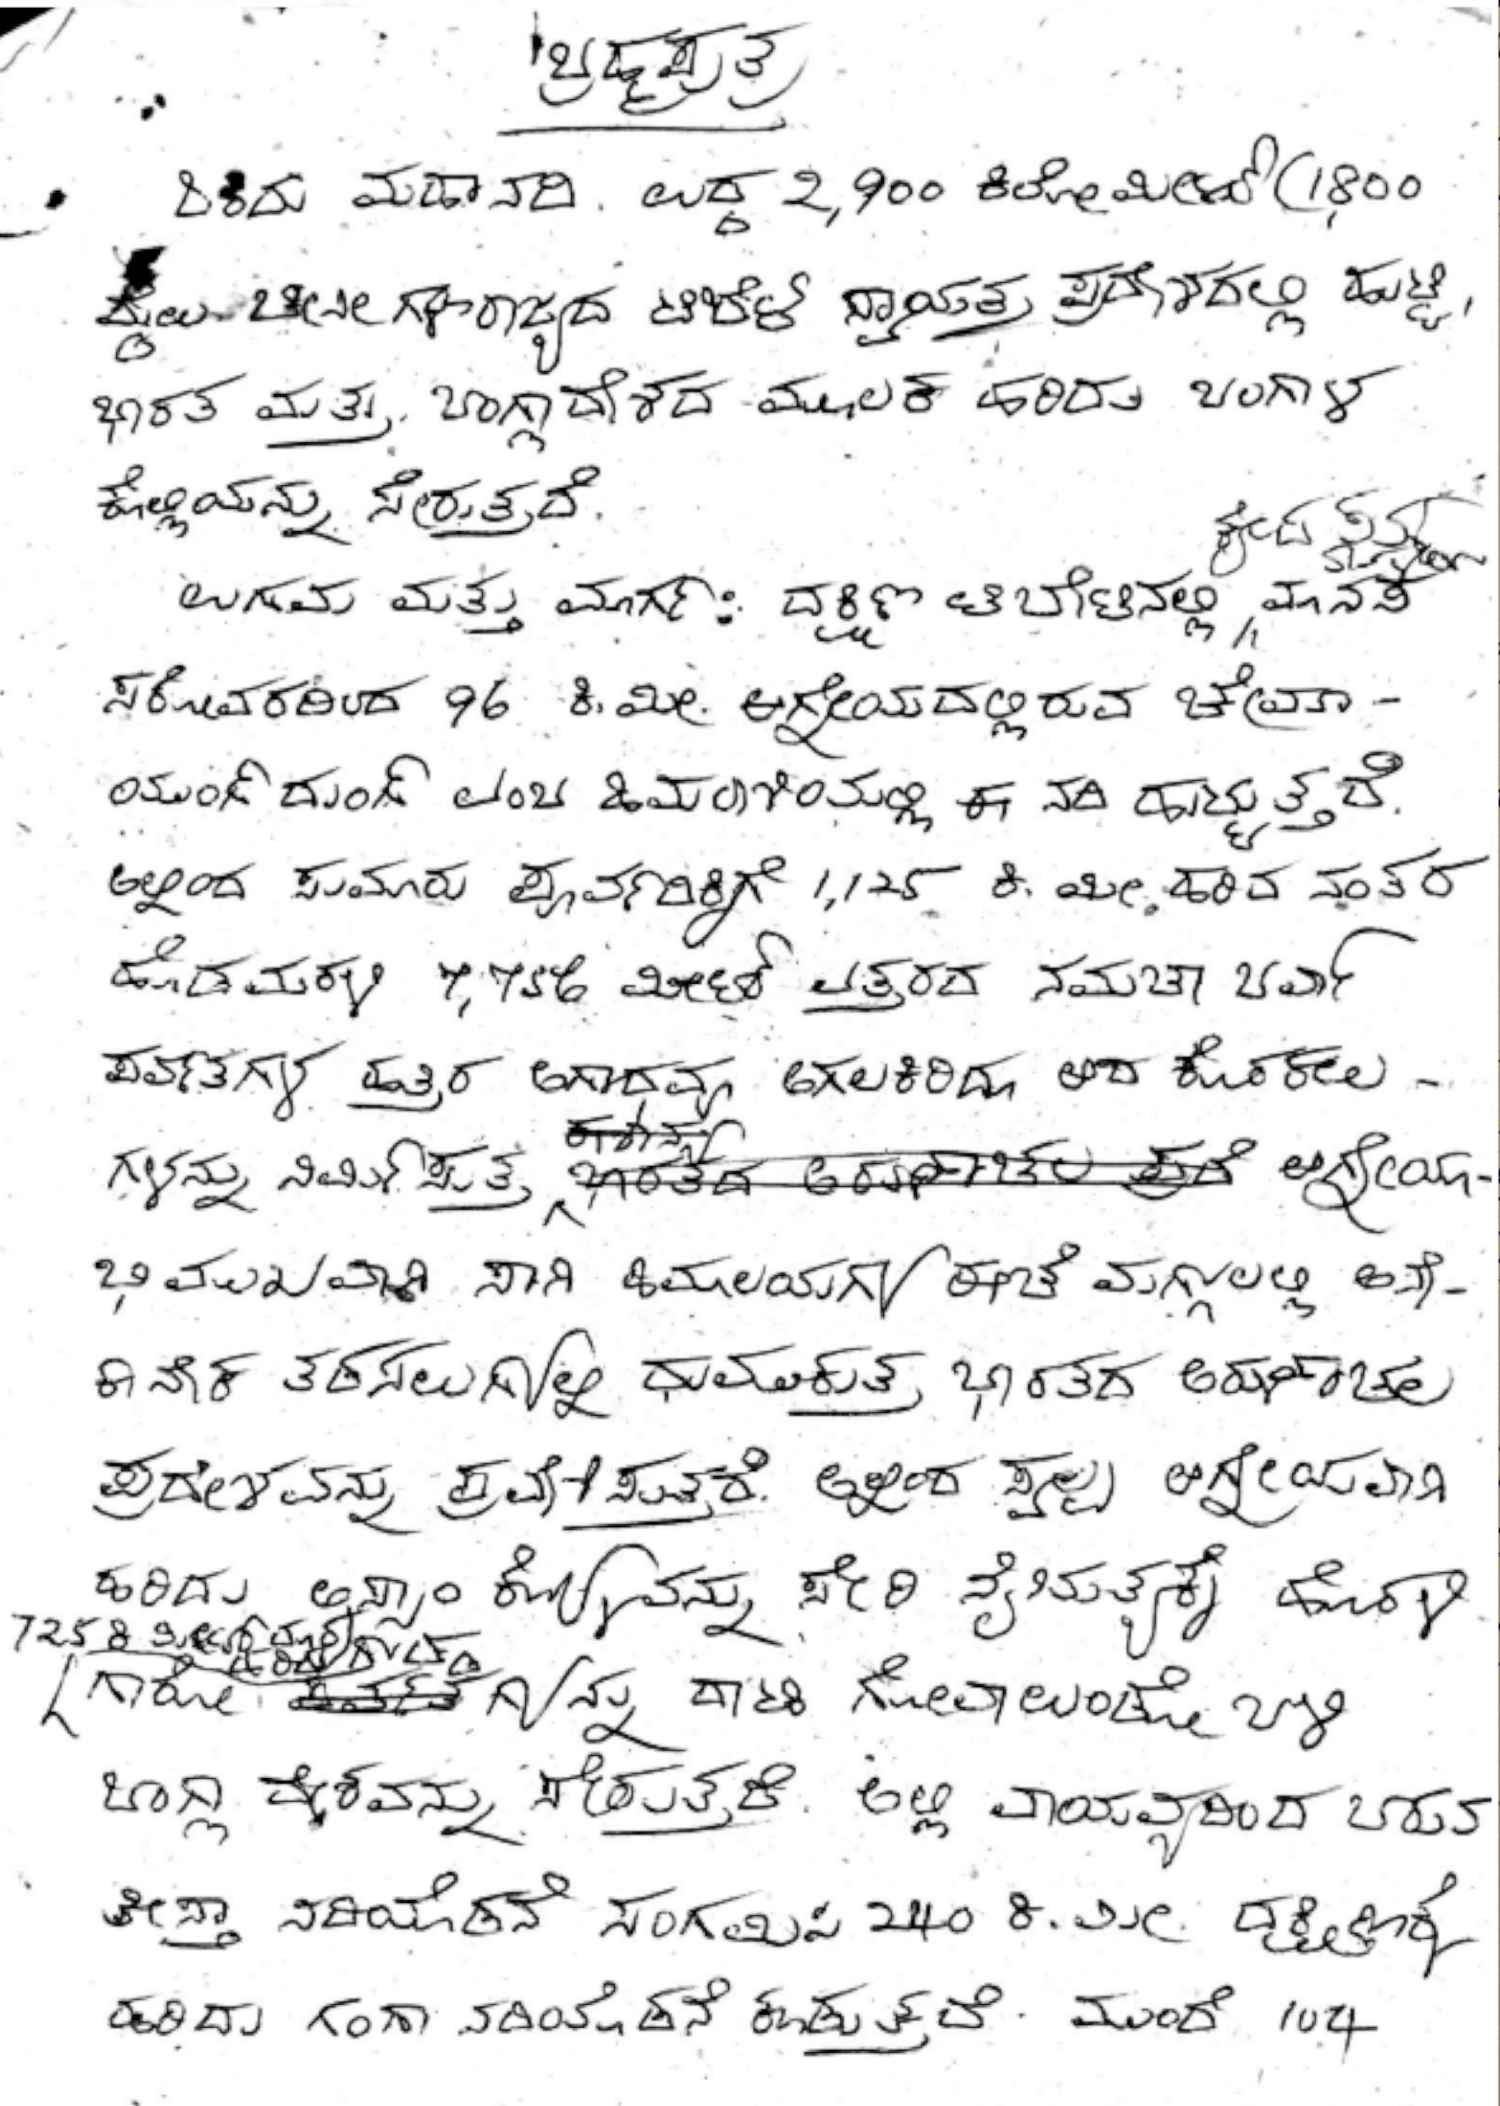 ಬ್ರಹ್ಮಪುತ್ರ
ಮಹಾನದಿ. ಉದ್ದ 2,900 ಕಿಲೋಮೀಟರ್ (1,800
ಮೈಲು ಚೀನೀ ಗಣರಾಜ್ಯದ ಟಿಬೆಟ್ ಸ್ವಾಯತ್ತ ಪ್ರದೇಶದಲ್ಲಿ ಹುಟ್ಟಿ,
ಭಾರತ ಮತ್ತು ಬಾಂಗ್ಲಾದೇಶದ ಮೂಲಕ ಹರಿದು ಬಂಗಾಳ
ಕೊಲ್ಲಿಯನ್ನು ಸೇರುತ್ತದೆ.
ಉಗಮ ಮತ್ತು ಮಾರ್ಗ: ದಕ್ಷಿಣ ಟಿಬೇಟಿನಲ್ಲಿ, ಮಾನಸ
ಸರೋವರದಿಂದ 96 ಕಿ.ಮೀ. ಆಗ್ನೇಯದಲ್ಲಿರುವ ಚೇಮಾ-
ಯುಂಗ್ ದುಂಗ್ ಎಂಬ ಹಿಮನಾಳಿಯಲ್ಲಿ ಈ ನದಿ ಹುಟ್ಟುತ್ತದೆ.
ಅಲ್ಲಿಂದ ಸುಮಾರು ಪೂರ್ವದಿಕ್ಕಿಗೆ 1,125 ಕಿ. ಮೀ. ಹರಿದ ನಂತರ
ಹೊಡಮರಳಿ 7,756 ಮೀಟರ್ ಎತ್ತರದ ನಮಚಾ ಬರ್ವಾ
ಪರ್ವತಗಳ ಹತ್ತಿರ ಅಗಾಧವೂ ಅಗಲಕಿರಿದೂ ಆದ ಕೊರಕಲು-
ಗಳನ್ನು ನಿರ್ಮಿಸುತ್ತ ಆಗ್ನೇಯಾ-
ಭಿಮುಖವಾಗಿ ಸಾಗಿ ಹಿಮಾಲಯಗಳ ಈಚೆ ಮಗ್ಗುಲಲ್ಲಿ ಅನೇ-
ಕಾನೇಕ ತಡಸಲುಗಳಲ್ಲಿ ಧುಮುಕುತ್ತ ಭಾರತದ ಅರುಣಾಚಲ
ಪ್ರದೇಶವನ್ನು ಪ್ರವೇಶಿಸುತ್ತದೆ. ಅಲ್ಲಿಂದ ಸ್ವಲ್ಪ ಆಗ್ನೇಯವಾಗಿ
ಹರಿದು ಅಸ್ಸಾಂ ಕೊಳ್ಳವನ್ನು ಸೇರಿ ನೈಋತ್ಯಕ್ಕೆ ಹೊರಳಿ
725 ಕಿ ಮೀಟರ್
ಗಾರೋ ಗಳನ್ನು ದಾಟಿ ಗೋವಾಲುಂಡೋ ಬಳಿ
ಬಾಂಗ್ಲಾ ದೇಶವನ್ನು ಸೇರುತ್ತದೆ. ಅಲ್ಲಿ ವಾಯವ್ಯದಿಂದ ಬರುವ
ತೀಸ್ತಾ ನದಿಯೊಡನೆ ಸಂಗಮಿಸಿ 240 ಕಿ. ಮೀ. ದಕ್ಷಿಣಕ್ಕೆ
ಹರಿದು ಗಂಗಾ ನದಿಯೊಡನೆ ಕೂಡುತ್ತದೆ. ಮುಂದೆ 104